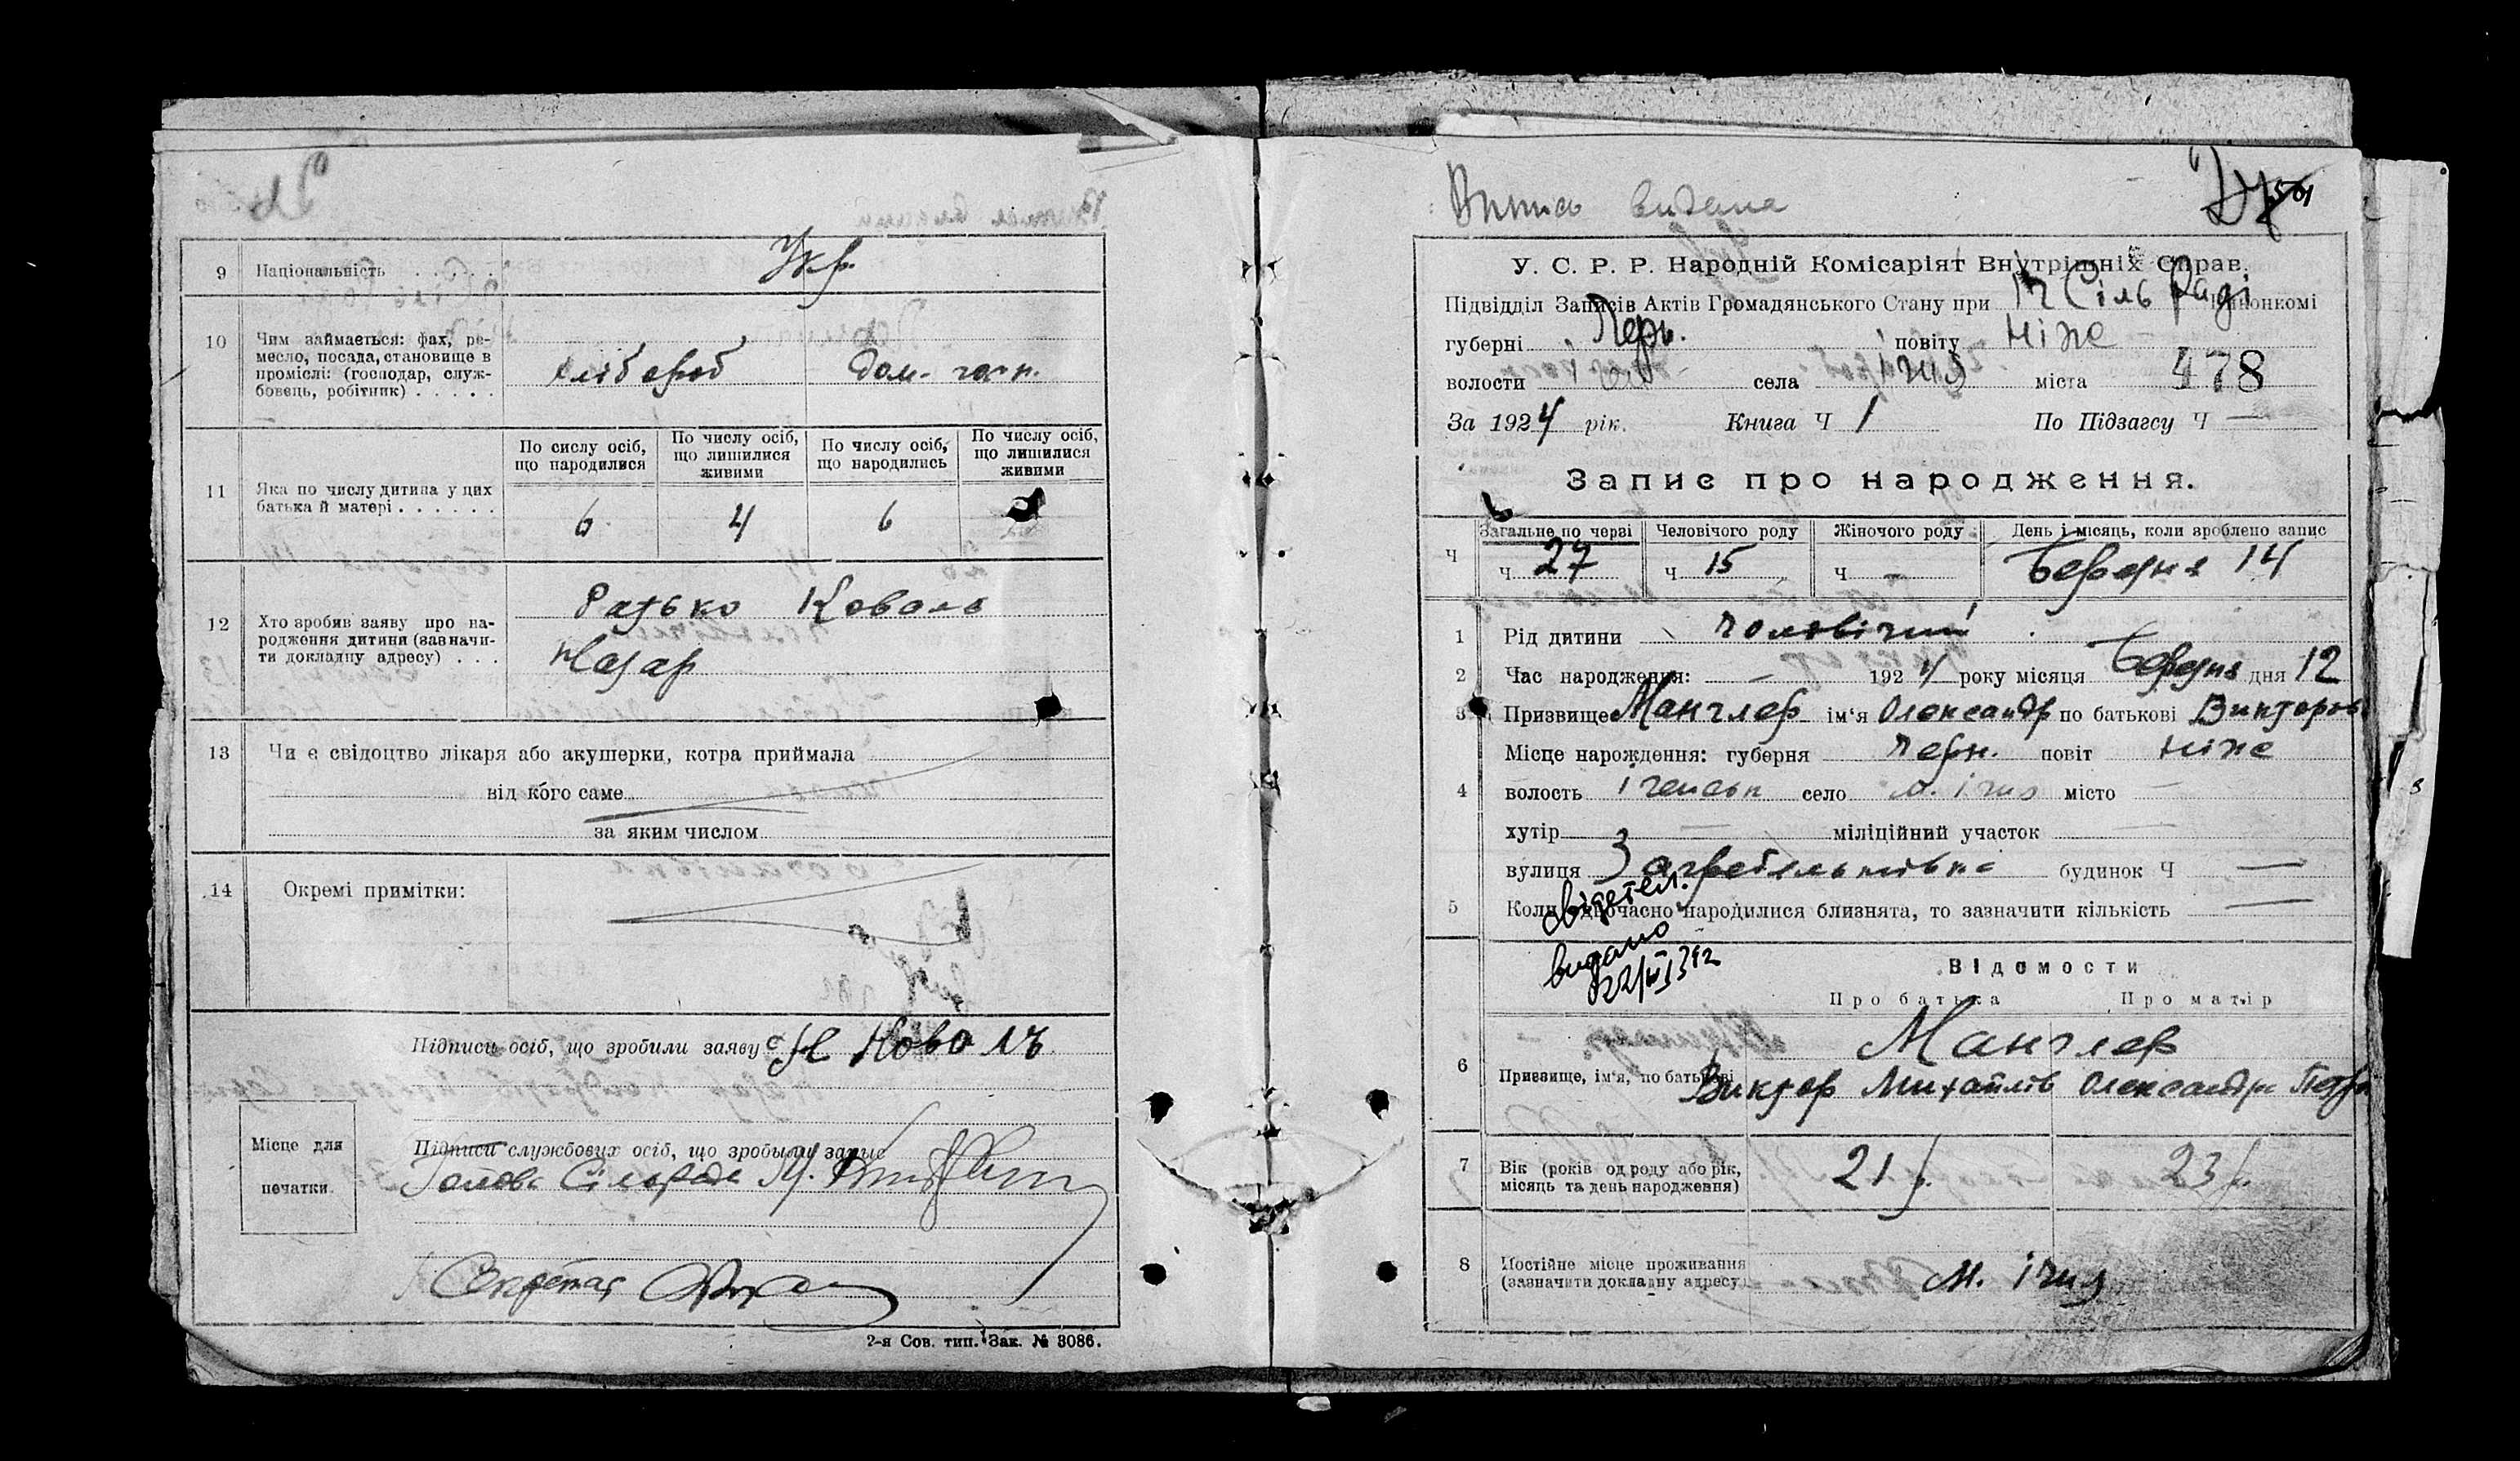 9 Національність . . . . . Укр.
10 Чим займається: фах, ре-
месло, посада, становище в
проміслі: (господар, служ-
бовець, робітник) . . . . .
хлібороб дом. госп.
11 Яка по числу дитина у цих
батька й матері . . . . . .
По сислу осіб, що народилися
По числу осіб, що лишилися живими
По числу осіб, що народились
По числу осіб, що лишилися живими
6 4 6
12 Хто зробив заяву про на-
родження дитини (зазначи-
ти докладну адресу) . . .
Коваль
Назар
13 Чи є свідоцтво лікаря або акушерки, котра приймала
від кого саме
за яким числом
14 Окремі примітки:
Підписи осіб, що зробили заяву
Місце для
печатки
Підписи службових осіб, що зробили запис
Голова Сільради М.
Секретар
2-я Сов. тип. Зак. № 3086.
Випис видана
У. С. Р. Р. Народній Комісаріят Внутрішніх Справ.
Підвідділ Записів Актів Громадянського Стану при Сіль Раді Райвонкомі
губерні Черн. повіту Ніже
волости села Ічня міста 478
За 1924 рік. Книга Ч 1 По Підзагсу Ч —
Запис про народження.
Ч Загальне по черзі Человічого роду Жіночого роду День і місяць, коли зроблено запис
Ч 27 Ч 15 Ч — Березня 14
1 Рід дитини чоловічий
2 Час народження: — 1924 року місяця Березня дня 12
3 Призвище Манглер ім'я Олександр по батькові Викторов
Місце народження: губерня Черн. повіт Ніже
4 волость Іченськ село м. Ічня місто —
хутір — міліційний участок —
вулиця Загребельківка будинок Ч —
5 Коли одночасно народилися близнята, то зазначити кількість —
свідетел.
видано
Відомости
Про батька Про матір
6 Призвище, ім'я, по батькові
Манглер
Виктор Михайлів Олександра Петр
7 Вік (років од роду або рік,
місяць та день народження)
21 р. 23 р.
8 Постійне місце проживання
(зазначити докладну адресу)
м. Ічня